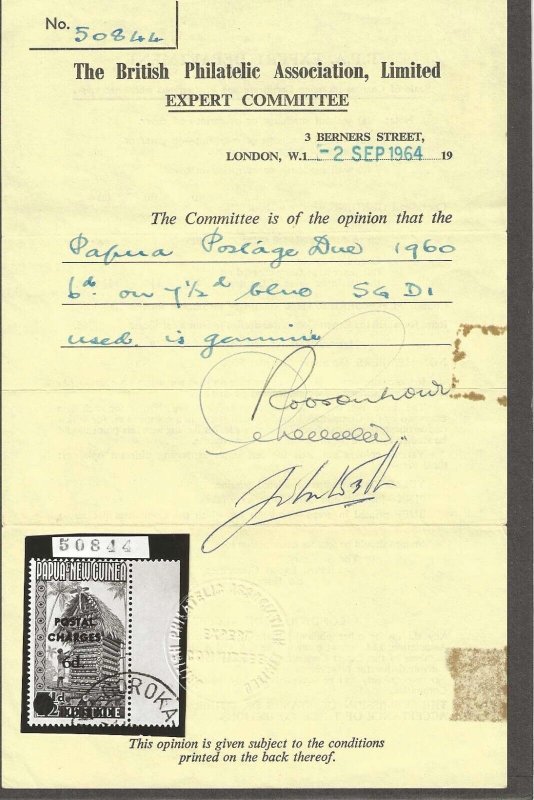 No. 50844
The British Philatelic Association, Limited
EXPERT COMMITTEE
3 BERNERS STREET,
LONDON, W.1 -2 SEP 1964 19
The Committee is of the opinion that the
Papua Postage Due 1960
6d. on 7½d blue SG D1
used is genuine
50844
PAPUA & NEW GUINEA
POSTAL
CHARGES
6d.
½d
POSTAGE
GOROKA
BRITISH PHILATELIC ASSOCIATION LIMITED
EXPERT
COMMITTEE
This opinion is given subject to the conditions
printed on the back thereof.